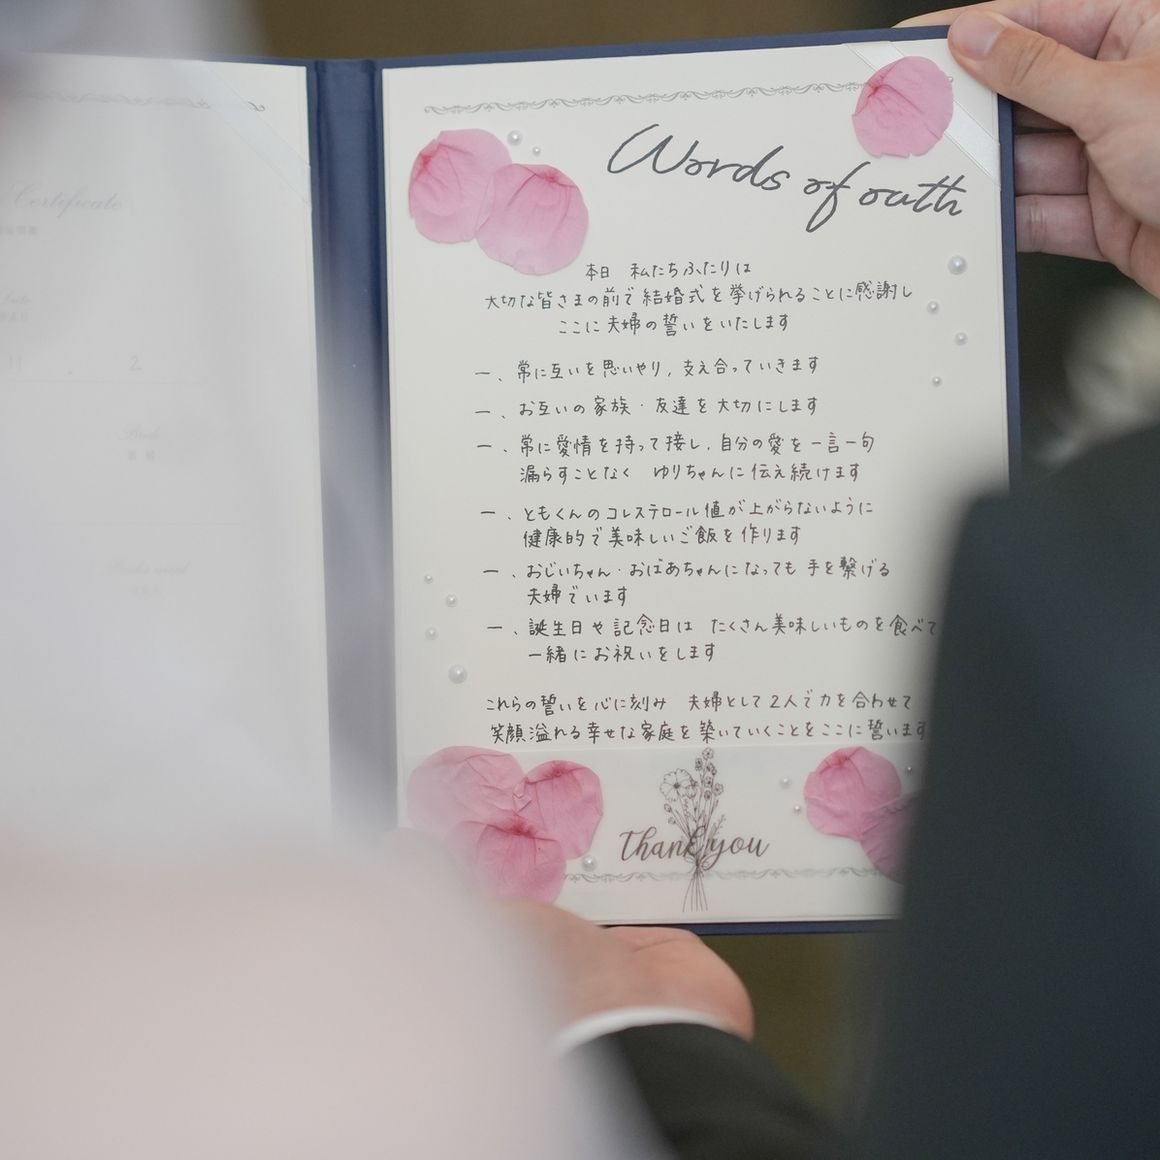 Certificate
11 . 2
Words of oath
本日 私たちふたりは
大切な皆さまの前で結婚式を挙げられることに感謝し
ここに夫婦の誓いをいたします
一、常に互いを思いやり、支え合っていきます
一、お互いの家族・友達を大切にします
一、常に愛情を持って接し、自分の愛を一言一句
漏らすことなく ゆりちゃんに伝え続けます
一、ともくんのコレステロール値が上がらないように
健康的で美味しいご飯を作ります
一、おじいちゃん・おばあちゃんになっても手を繋げる
夫婦でいます
一、誕生日や記念日は たくさん美味しいものを食べて
一緒にお祝いをします
これらの誓いを心に刻み 夫婦として2人で力を合わせて
笑顔溢れる幸せな家庭を築いていくことをここに誓います
Thank you